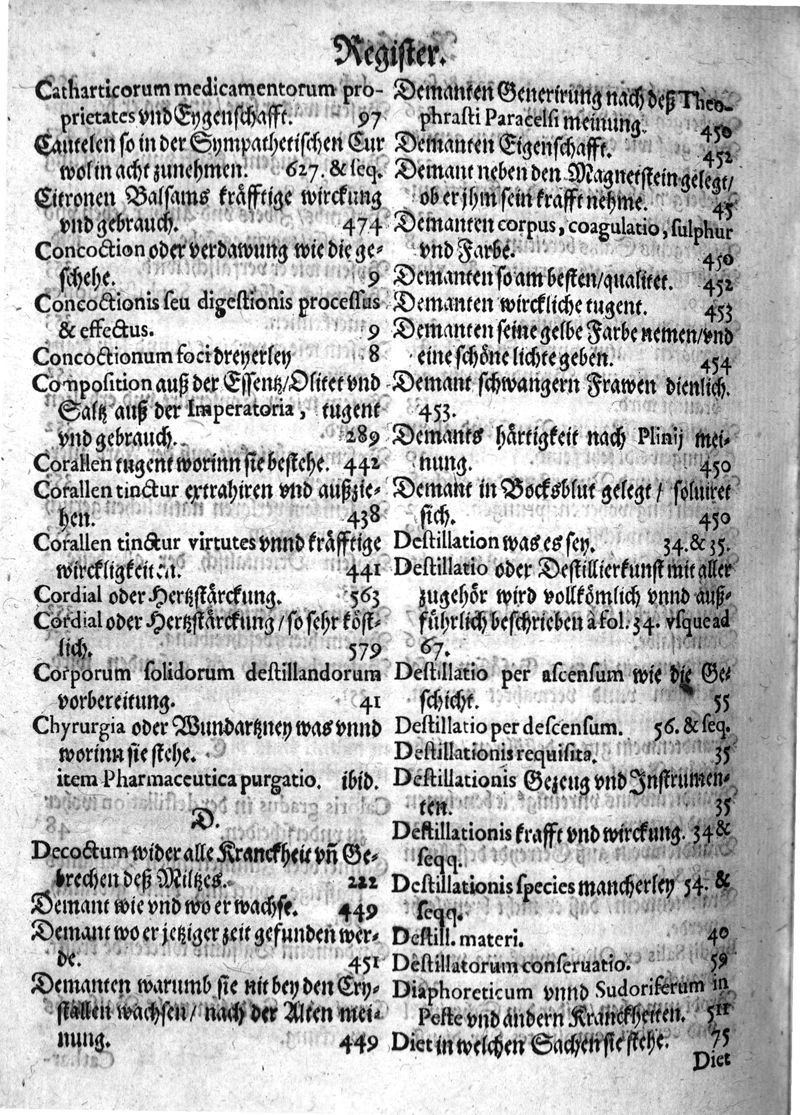 Register.
Catharticorum medicamentorum pro-
prietates vnd Eygenschafft. 97
Cautelen so in der Sympathetischen Cur
wol in acht zunehmen. 627. & seq.
Citronen Balsams kräfftige wirckung
vnd gebrauch. 474
Concoction oder verdawung wie die ge-
schehe. 9
Concoctionis seu digestionis processus
& effectus. 9
Concoctionum foci dreyerley 8
Composition auß der Essentz/Olitet vnd
Saltz auß der Imperatoria, tugent
vnd gebrauch. 289
Corallen tugent worinn sie bestehe. 442
Corallen tinctur extrahiren vnd außzie-
hen. 438
Corallen tinctur virtutes vnnd kräfftige
wirckligkeiten. 441
Cordial oder Hertzstärckung. 563
Cordial oder Hertzstärckung/so sehr köst-
lich. 579
Corporum solidorum destillandorum
vorbereitung. 41
Chyrurgia oder Wundartzney was vnnd
worinn sie stehe. 6
item Pharmaceutica purgatio. ibid.
D.
Decoctum wider alle Kranckheit vñ Ge-
brechen deß Miltzes. 222
Demant wie vnd wo er wachse. 449
Demant wo er jetziger zeit gefunden wer-
de. 451
Demanten warumb sie nit bey den Cry-
stallen wachsen/ nach der Alten mei-
nung. 449
Demanten Generirung nach deß Theo-
phrasti Paracelsi meinung. 450
Demanten Eigenschafft. 452
Demant neben den Magnetstein gelegt/
ob er jhm sein krafft nehme. 45
Demanten corpus, coagulatio, sulphur
vnd Farbe. 450
Demanten so am besten/qualitet. 452
Demanten wirckliche tugent. 453
Demanten seine gelbe Farbe nemen/vnd
eine schöne lichte geben. 454
Demant schwangern Frawen dienlich.
453.
Demants härtigkeit nach Plinij mei-
nung. 450
Demant in Bocksblut gelegt/ soluiret
sich. 450
Destillation was es sey. 34. & 35.
Destillatio oder Destillierkunst mit aller
zugehör wird vollkömlich vnnd auß-
führlich beschrieben à fol. 34. vsque ad
67.
Destillatio per ascensum wie die Ge-
schicht. 55
Destillatio per descensum. 56. & seq.
Destillationis requisita. 35
Destillationis Gezeug vnd Instrumen-
ten. 35
Destillationis krafft vnd wirckung. 34 &
seqq.
Destillationis species mancherley 54. &
seqq.
Destill. materi. 40
Destillatorum conseruatio. 59
Diaphoreticum vnnd Sudoriferum in
Peste vnd andern Kranckheiten. 511
Diet in welchen Sachen sie stehe. 75
Diet